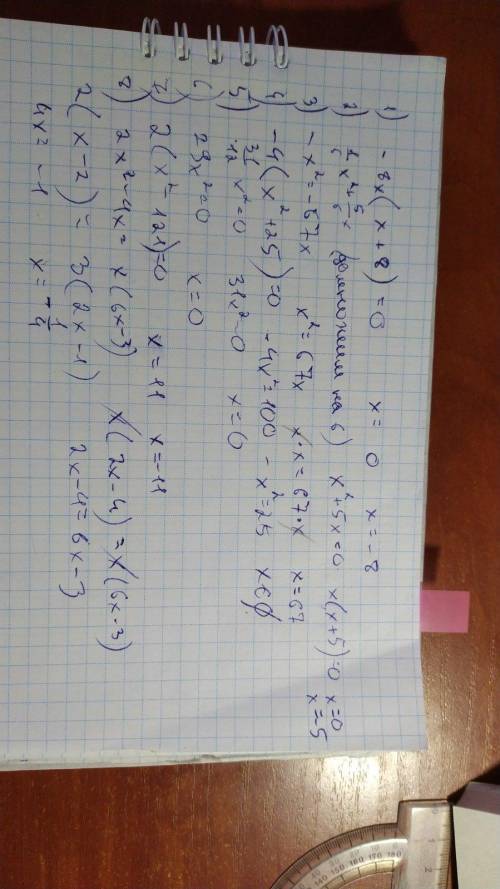 1) -8x(x+8)=0 x=0 x=-8
2) 1/6 x²+5/6 x (домножим на 6) x²+5x=0 x(x+5)=0 x=0
x=-5
3) -x²=-67x x²=67x x·x=67·x x=67
4) -4(x²+25)=0 -4x²=100 -x²=25 x∈∅
5) 31/12 x²=0 31x²=0 x=0
6) 23x²=0 x=0
7) 2(x²-121)=0 x=11 x=-11
8) 2x²-4x=x(6x-3) x(2x-4)=x(6x-3)
2(x-2)=3(2x-1) 2x-4=6x-3
4x=-1 x=-1/4